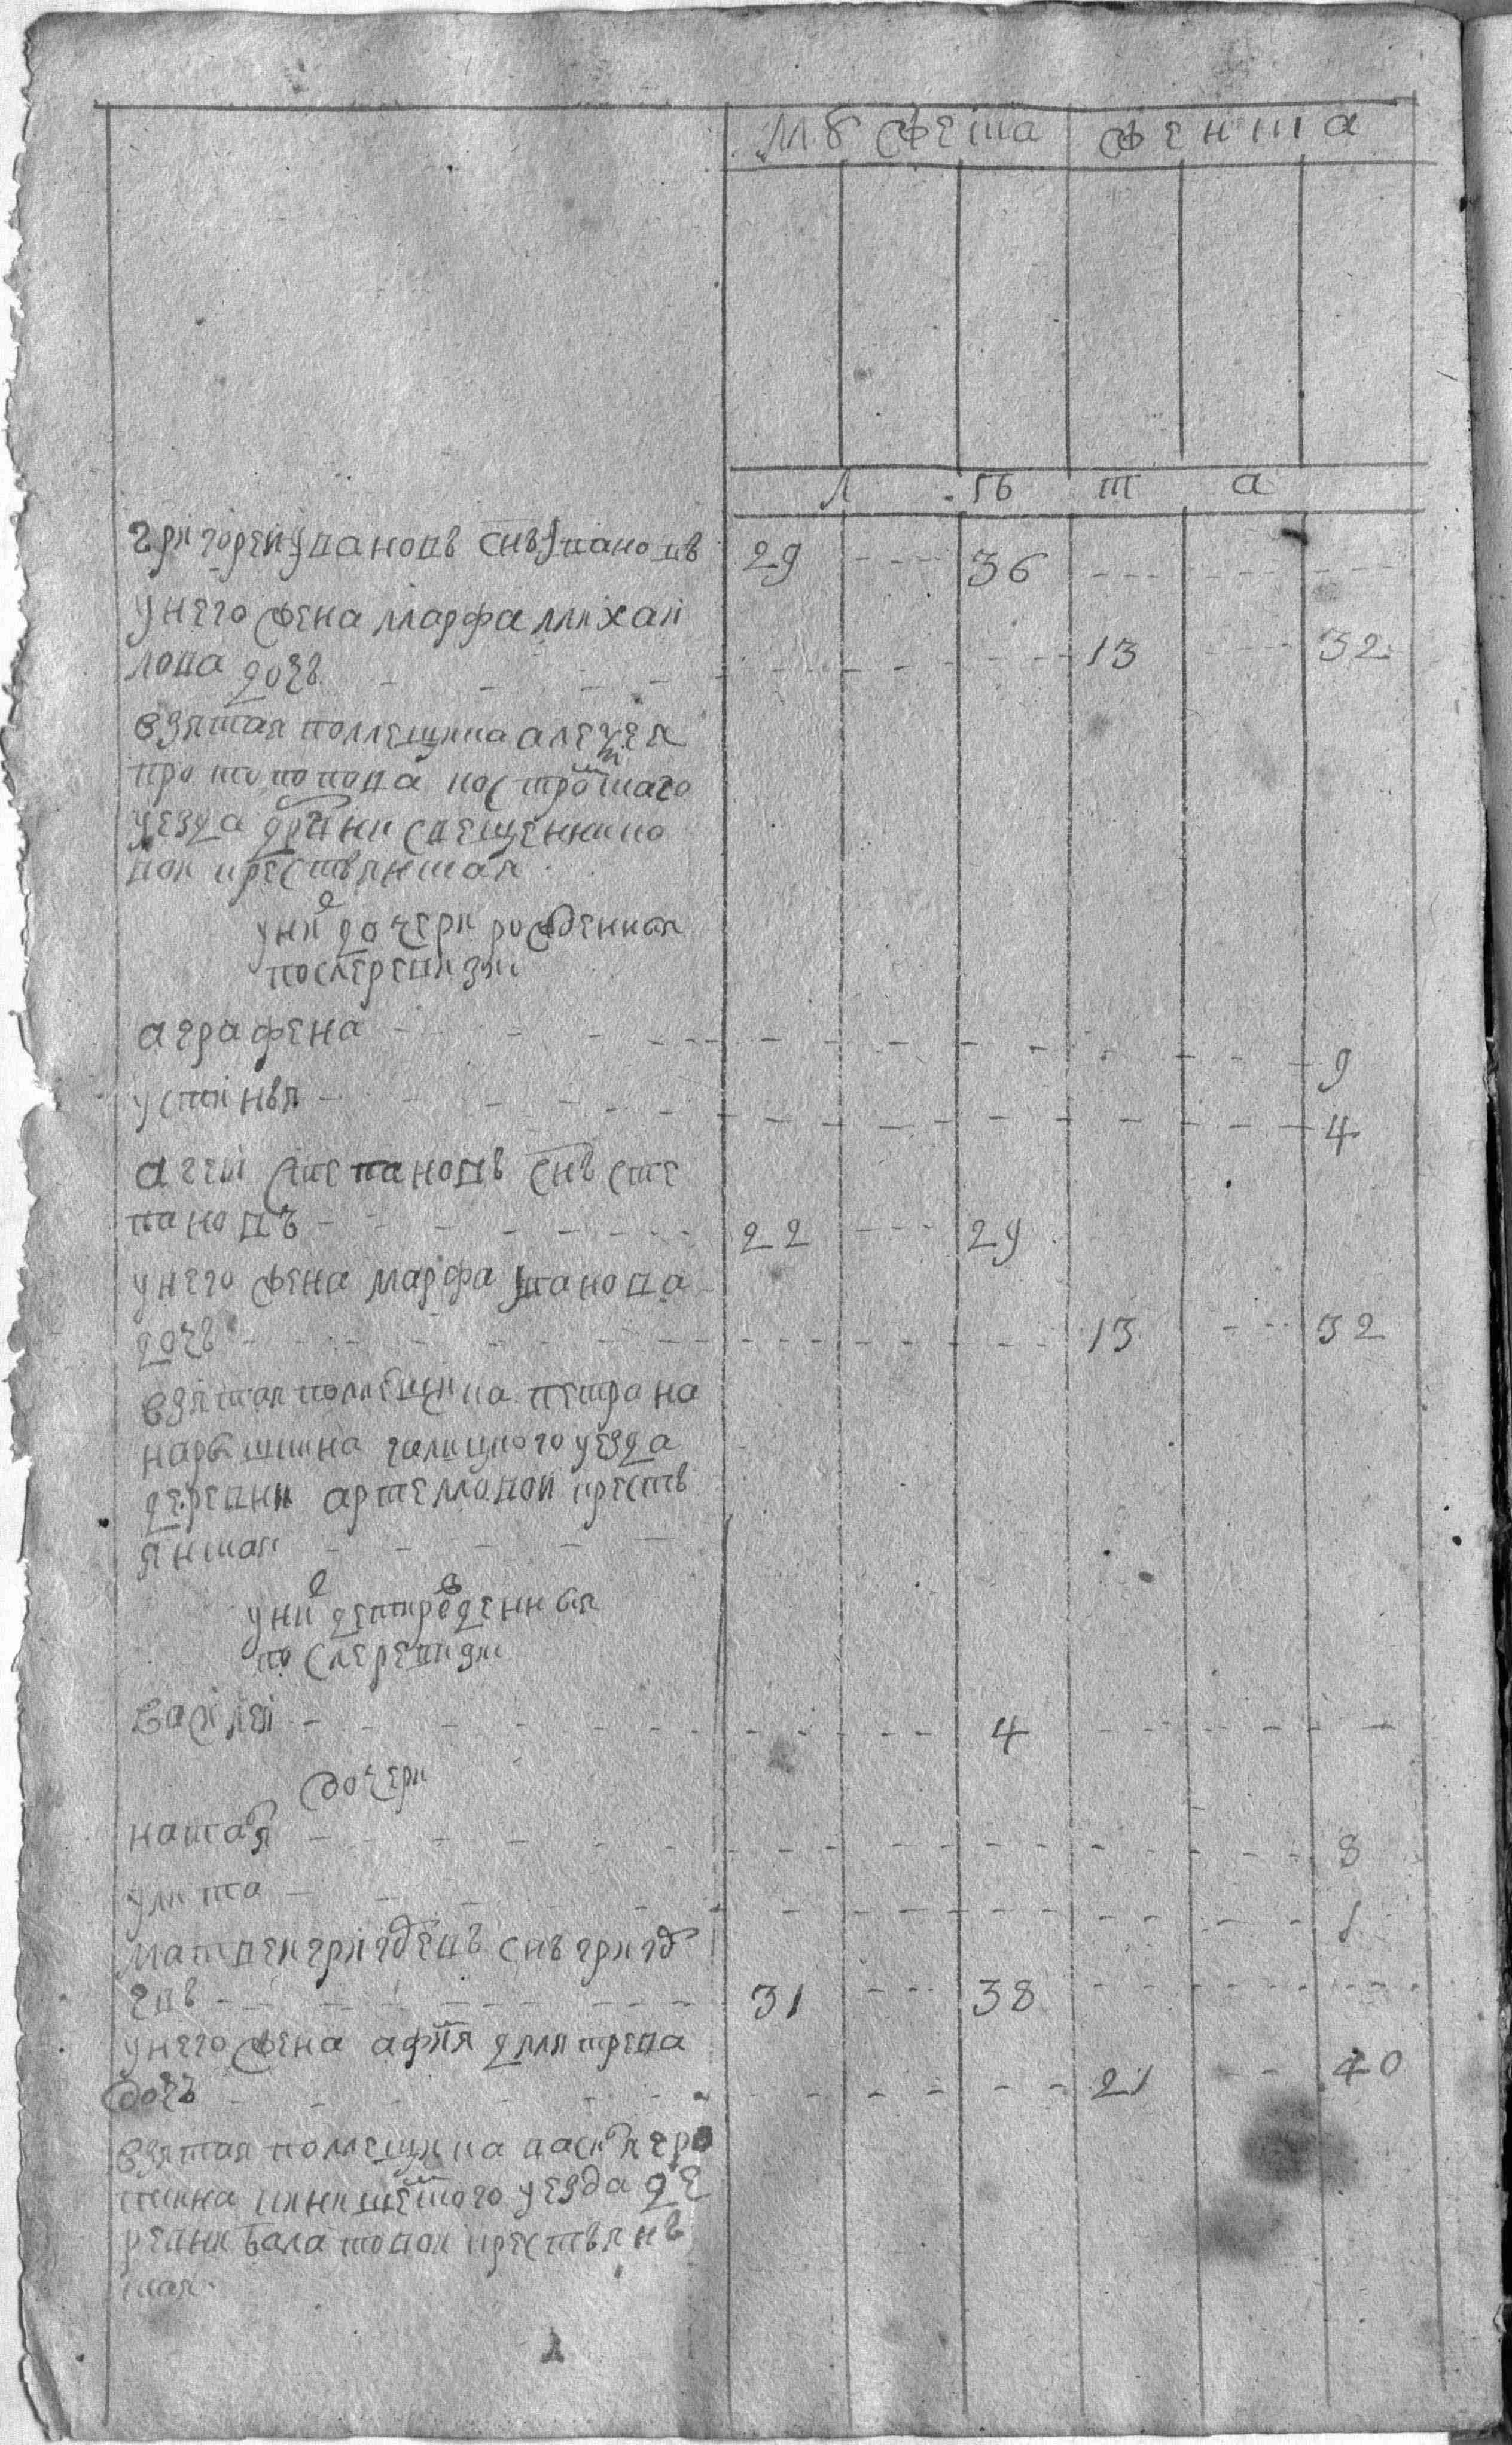 мужеска женска
л ѣ т а
григорей ивановъ снъ ивановъ 29 --- 36
у него жена марфа михаи
лова дочь 13 --- 32
взятая помещика алексея
протопопова костромскаго
уезда дрвни свещеннико
вой крестьянская
у них дочери рожденныя
после ревизии
аграфена 9
устинья 4
агей степановъ снъ сте
пановъ 22 --- 29
у него жена марфа иванова
дочь 13 --- 32
взятая помещика петра на
нарышкина галицкого уезда
деревни артемовой кресть
янская
у них дети рожденныя
после ревизии
василей 4
дочери
наталя 8
улита 1
матвей григорьевъ снъ григор
евъ 31 --- 38
у него жена афимя дмитрева
дочь 21 --- 40
взятая помещика василя ера
пкина кинешемского уезда де
ревни балатовой крестьянь
ская